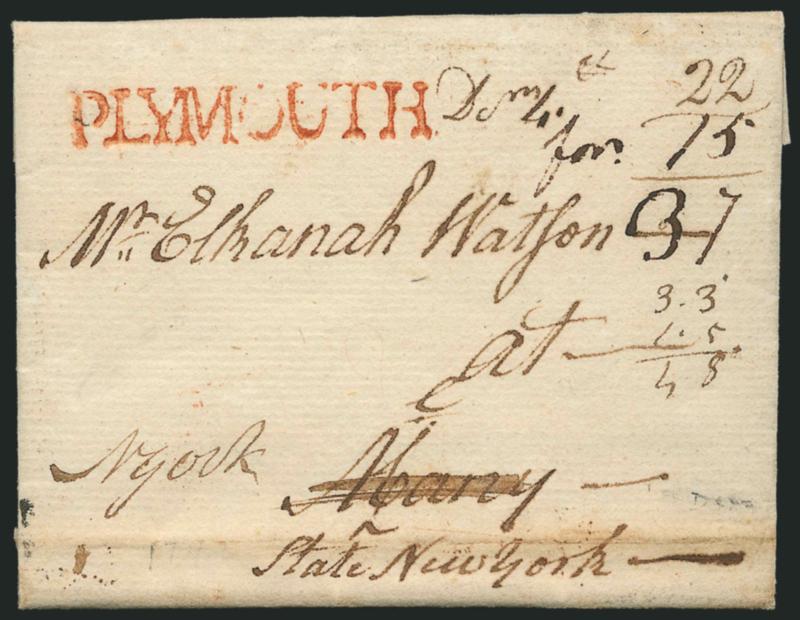 PLYMOUTH 22
for 15
Mr. Elkanah Watson 37
3.3
at 1.5
4 8
N york Albany
State New York